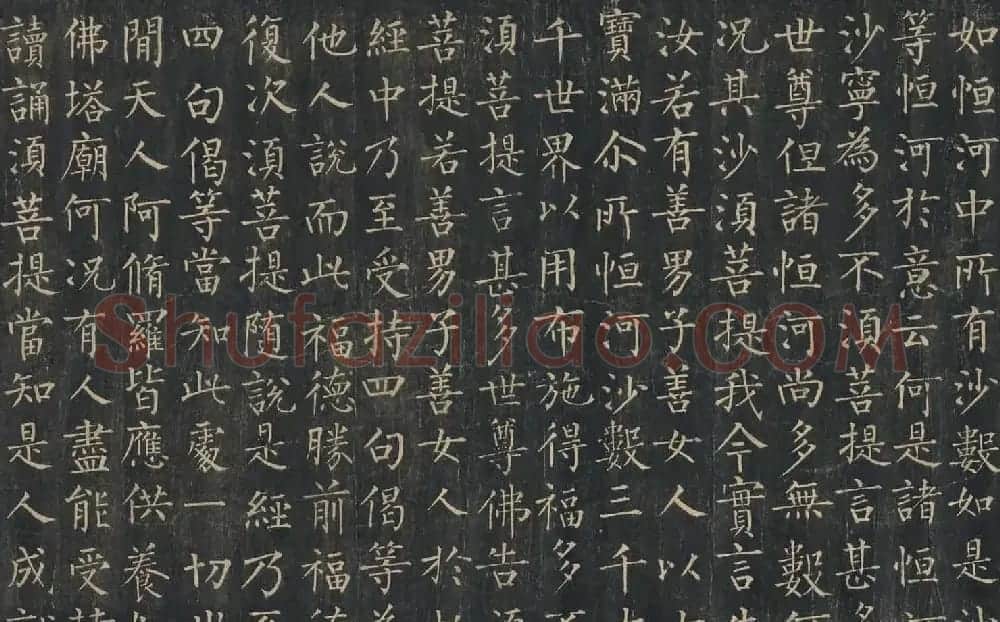 如恒河中所有沙數如是
等恒河於意云何是諸恒
沙寧為多不須菩提言甚
世尊但諸恒河尚多無數
況其沙須菩提我今實言
汝若有善男子善女人以
寶滿尒所恒河沙數三千
千世界以用布施得福多
須菩提言甚多世尊佛告
菩提若善男子善女人於
經中乃至受持四句偈等
他人說而此福德勝前福
復次須菩提隨說是經乃
四句偈等當知此處一切
間天人阿脩羅皆應供養
佛塔廟何況有人盡能受
讀誦須菩提當知是人成
Shufaziliao.COM